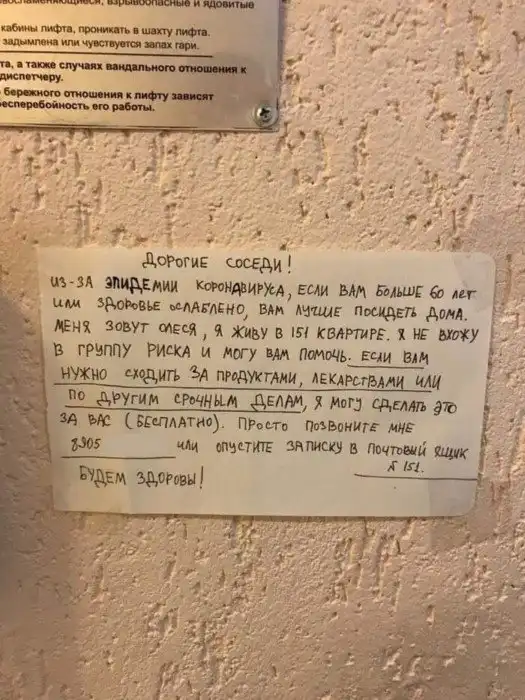 воспламеняющиеся, взрывоопасные и ядовитые
кабины лифта, проникать в шахту лифта.
задымлена или чувствуется запах гари.
та, а также случаях вандального отношения к
диспетчеру.
бережного отношения к лифту зависят
бесперебойность его работы.
ДОРОГИЕ СОСЕДИ!
ИЗ-ЗА ЭПИДЕМИИ КОРОНАВИРУСА, ЕСЛИ ВАМ БОЛЬШЕ 60 ЛЕТ
ИЛИ ЗДОРОВЬЕ ОСЛАБЛЕНО, ВАМ ЛУЧШЕ ПОСИДЕТЬ ДОМА.
МЕНЯ ЗОВУТ ОЛЕСЯ, Я ЖИВУ В 151 КВАРТИРЕ. Я НЕ ВХОЖУ
В ГРУППУ РИСКА И МОГУ ВАМ ПОМОЧЬ. ЕСЛИ ВАМ
НУЖНО СХОДИТЬ ЗА ПРОДУКТАМИ, ЛЕКАРСТВАМИ ИЛИ
ПО ДРУГИМ СРОЧНЫМ ДЕЛАМ, Я МОГУ СДЕЛАТЬ ЭТО
ЗА ВАС (БЕСПЛАТНО). ПРОСТО ПОЗВОНИТЕ МНЕ
8905 ИЛИ ОПУСТИТЕ ЗАПИСКУ В ПОЧТОВЫЙ ЯЩИК
№ 151.
БУДЕМ ЗДОРОВЫ!